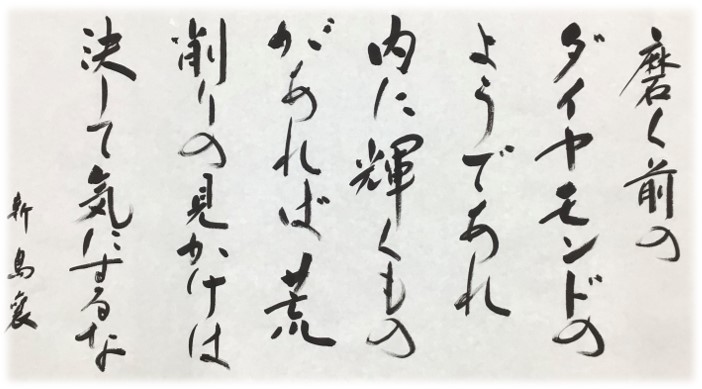 磨く前の
ダイヤモンドの
ようであれ
内に輝くもの
があれば荒
削りの見かけは
決して気にするな
新島襄